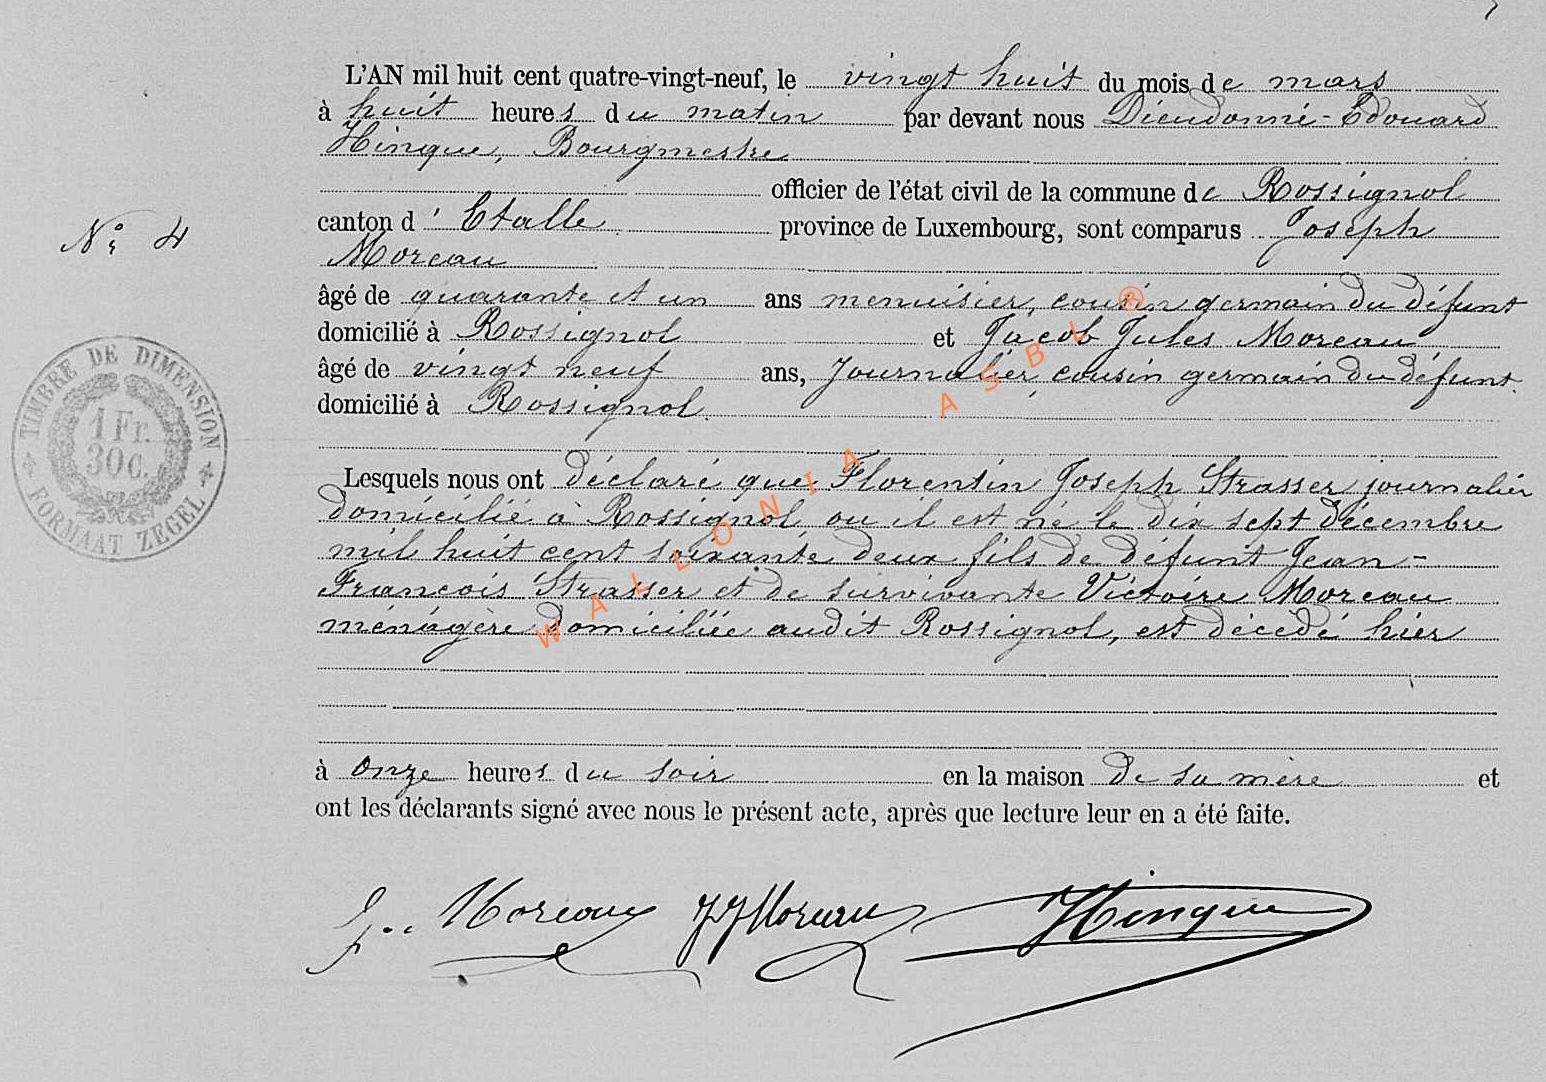 L'AN mil huit cent quatre-vingt-neuf, le vingt huit du mois de mars
à huit heures du matin par devant nous Dieudonné-Edouard
Hinque, Bourgmestre
officier de l'état civil de la commune de Rossignol
canton d'Etalle province de Luxembourg, sont comparus Joseph
Moreau
Nº 4
âgé de quarante et un ans menuisier, cousin germain du défunt
domicilié à Rossignol et Jacob Jules Moreau
âgé de vingt neuf ans, Journalier, cousin germain du défunt
domicilié à Rossignol.
TIMBRE DE DIMENSION
1 Fr.
30 c.
FORMAAT ZEGEL
Lesquels nous ont déclaré que Florentin Joseph Strasser journalier
domicilié à Rossignol ou il est né le dix sept décembre
mil huit cent soixante deux fils de défunt Jean-
François Strasser et de survivante Victoire Moreau
ménagère domiciliée audit Rossignol, est décédé hier
à onze heures du soir en la maison de sa mère et
ont les déclarants signé avec nous le présent acte, après que lecture leur en a été faite.
J. Moreau JJ Moreau Hinque
WALLONIA ASBL ®